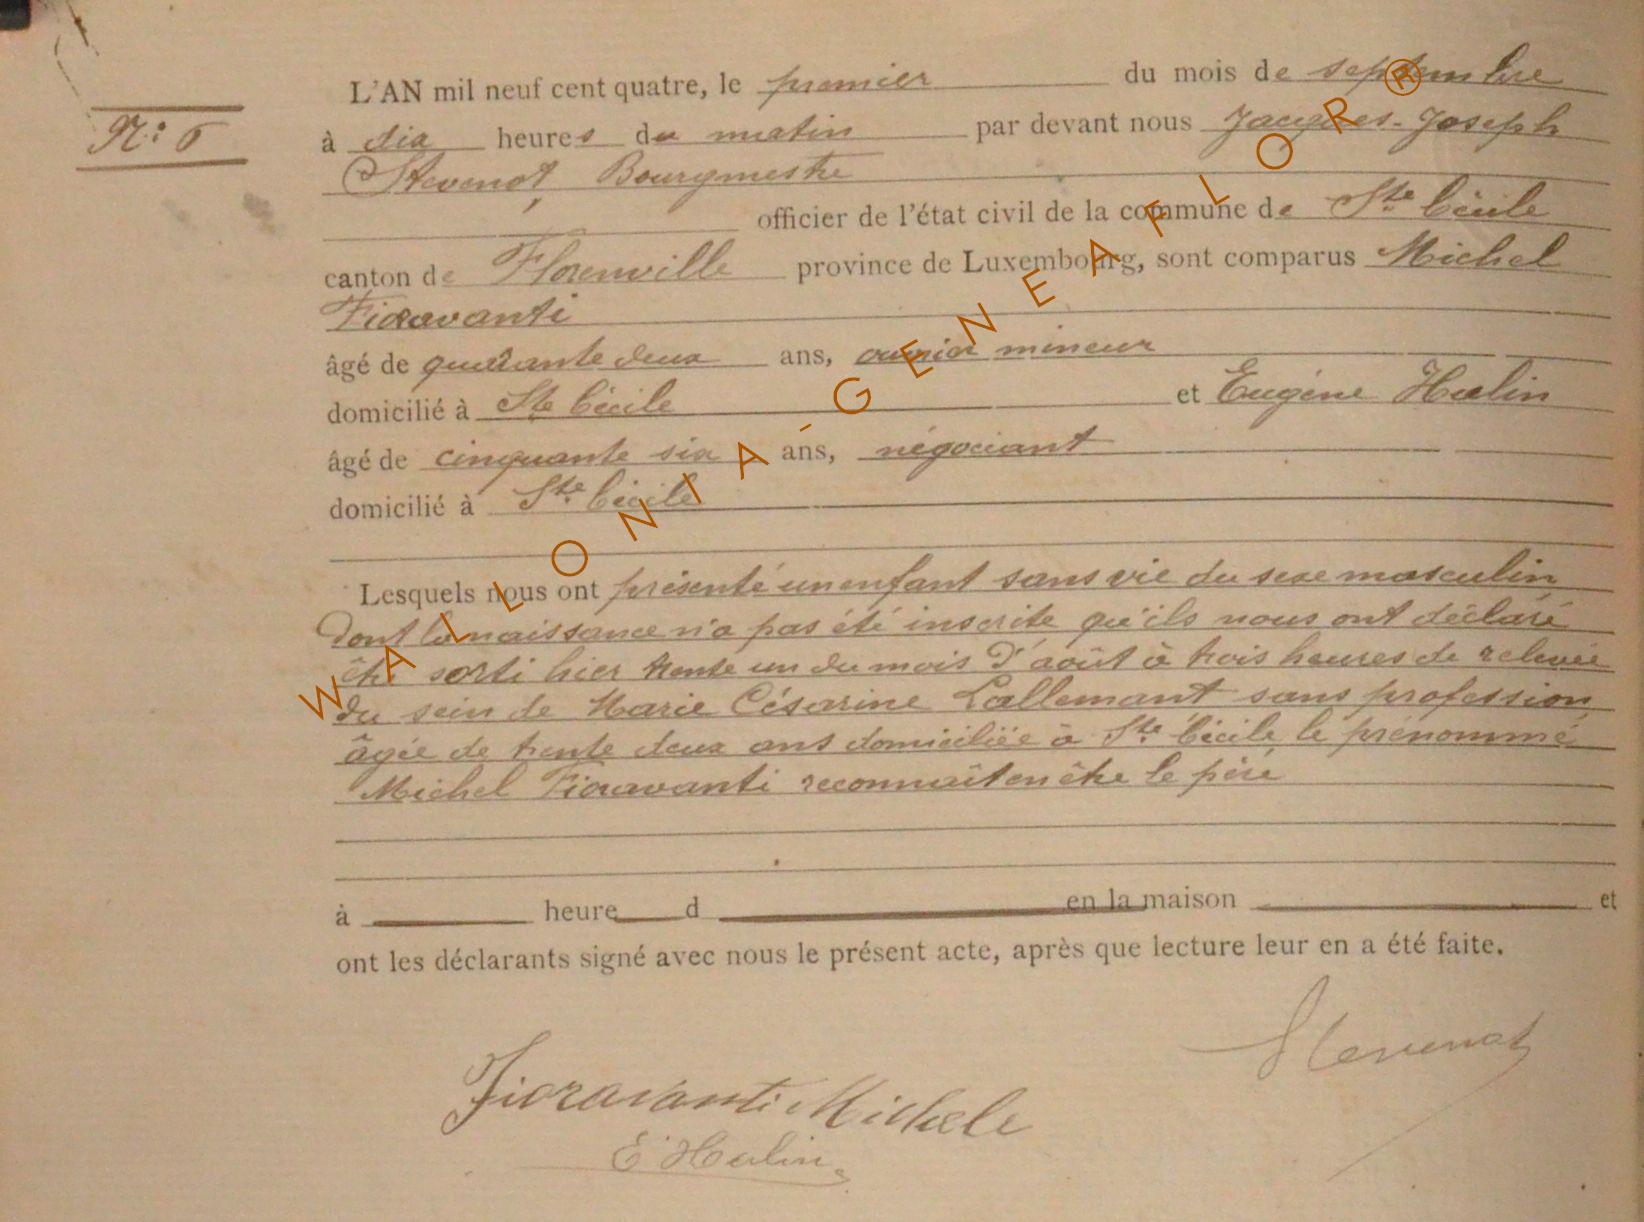 L'AN mil neuf cent quatre, le premier du mois de septembre
N.: 6
à dix heures du matin par devant nous Jacques-Joseph
Stevenot, Bourgmestre
officier de l'état civil de la commune de Ste Cécile
canton de Florenville province de Luxembourg, sont comparus Michel
Fioravanti
âgé de quarante deux ans, ouvrier mineur
domicilié à Ste Cécile et Eugène Hulin
âgé de cinquante six ans, négociant
domicilié à Ste Cécile
Lesquels nous ont présenté un enfant sans vie du sexe masculin
dont la naissance n'a pas été inscrite qu'ils nous ont déclaré
être sorti hier trente un du mois d'août à trois heures de relevée
du sein de Marie Césarine Lallemant sans profession
âgée de trente deux ans domiciliée à Ste Cécile, le prénommé
Michel Fioravanti reconnaît en être le père
à heure d en la maison et
ont les déclarants signé avec nous le présent acte, après que lecture leur en a été faite.
Stevenot
Fioravanti Michele
E Hulin
WALLONIA-GENEAFLOR®